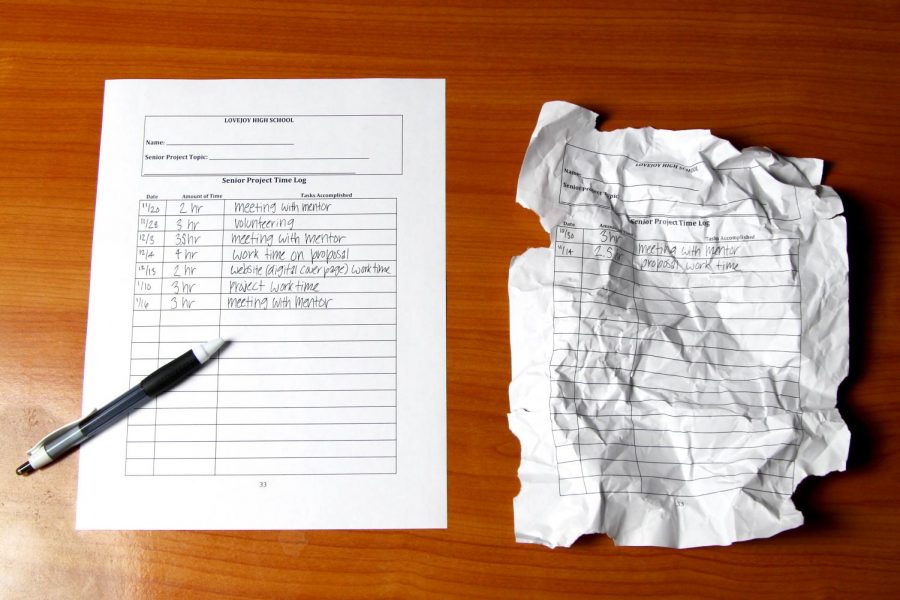 LOVEJOY HIGH SCHOOL
Name:
Senior Project Topic:
Senior Project Time Log
Date Amount of Time Tasks Accomplished
11/20 2 hr meeting with mentor
3 hr volunteering
12/3 meeting with mentor
12/4 4 hr work time on proposal
2 hr website (digital cover page) work time
1/10 3 hr project work time
1/16 3 hr meeting with mentor
33
LOVEJOY HIGH SCHOOL
Name:
Senior Project Topic:
Senior Project Time Log
Date Tasks Accomplished
10/30 3 hr meeting with mentor
2.5 hr proposal work time
33